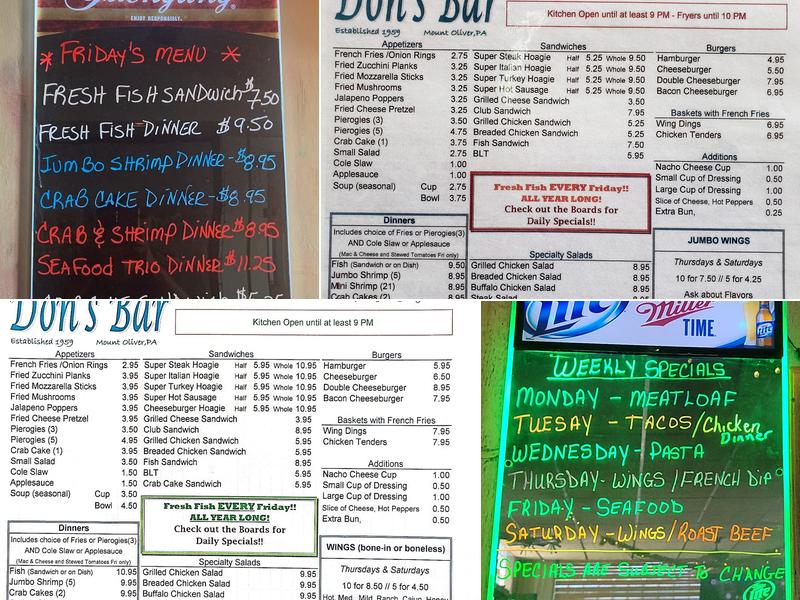 Yuengling
ENJOY RESPONSIBLY.
* FRIDAY'S MENU *
FRESH FISH SANDWICH $7.50
FRESH FISH DINNER $9.50
JUMBO SHRIMP DINNER-$8.95
CRAB CAKE DINNER-$8.95
CRAB & SHRIMP DINNER $8.95
SEAFOOD TRIO DINNER $11.25
Don's Bar
Kitchen Open until at least 9 PM - Fryers until 10 PM
Established 1959 Mount Oliver,PA
Appetizers
French Fries /Onion Rings 2.75
Fried Zucchini Planks 3.25
Fried Mozzarella Sticks 3.25
Fried Mushrooms 3.25
Jalapeno Poppers 3.25
Fried Cheese Pretzel 3.25
Pierogies (3) 3.50
Pierogies (5) 4.75
Crab Cake (1) 3.75
Small Salad 2.75
Cole Slaw 1.00
Applesauce 1.00
Soup (seasonal) Cup 2.75
Bowl 3.75
Sandwiches
Super Steak Hoagie Half 5.25 Whole 9.50
Super Italian Hoagie Half 5.25 Whole 9.50
Super Turkey Hoagie Half 5.25 Whole 9.50
Super Hot Sausage Half 5.25 Whole 9.50
Grilled Cheese Sandwich 3.50
Club Sandwich 7.95
Grilled Chicken Sandwich 5.25
Breaded Chicken Sandwich 5.25
Fish Sandwich 7.50
BLT 5.95
Burgers
Hamburger 4.95
Cheeseburger 5.50
Double Cheeseburger 7.95
Bacon Cheeseburger 6.95
Baskets with French Fries
Wing Dings 6.95
Chicken Tenders 6.95
Additions
Nacho Cheese Cup 1.00
Small Cup of Dressing 0.50
Large Cup of Dressing 1.00
Slice of Cheese, Hot Peppers 0.50
Extra Bun, 0.25
Fresh Fish EVERY Friday!!
ALL YEAR LONG!
Check out the Boards for
Daily Specials!!
Dinners
Includes choice of Fries or Pierogies(3)
AND Cole Slaw or Applesauce
(Mac & Cheese and Stewed Tomatoes Fri only)
Fish (Sandwich or on Dish) 9.50
Jumbo Shrimp (5) 8.95
Mini Shrimp (21) 8.95
Crab Cakes (2) 8.95
Specialty Salads
Grilled Chicken Salad 8.95
Breaded Chicken Salad 8.95
Buffalo Chicken Salad 8.95
Steak Salad
JUMBO WINGS
Thursdays & Saturdays
10 for 7.50 // 5 for 4.25
Ask about Flavors
Don's Bar
Kitchen Open until at least 9 PM
Established 1959 Mount Oliver,PA
Appetizers
French Fries /Onion Rings 2.95
Fried Zucchini Planks 3.95
Fried Mozzarella Sticks 3.95
Fried Mushrooms 3.95
Jalapeno Poppers 3.95
Fried Cheese Pretzel 3.95
Pierogies (3) 3.50
Pierogies (5) 4.95
Crab Cake (1) 3.95
Small Salad 3.50
Cole Slaw 1.50
Applesauce 1.50
Soup (seasonal) Cup 3.50
Bowl 4.50
Sandwiches
Super Steak Hoagie Half 5.95 Whole 10.95
Super Italian Hoagie Half 5.95 Whole 10.95
Super Turkey Hoagie Half 5.95 Whole 10.95
Super Hot Sausage Half 5.95 Whole 10.95
Cheeseburger Hoagie Half 5.95 Whole 10.95
Grilled Cheese Sandwich 3.95
Club Sandwich 8.95
Grilled Chicken Sandwich 5.95
Breaded Chicken Sandwich 5.95
Fish Sandwich 8.95
BLT 5.95
Crab Cake Sandwich 5.95
Burgers
Hamburger 5.95
Cheeseburger 6.50
Double Cheeseburger 8.95
Bacon Cheeseburger 7.95
Baskets with French Fries
Wing Dings 7.95
Chicken Tenders 7.95
Additions
Nacho Cheese Cup 1.00
Small Cup of Dressing 0.50
Large Cup of Dressing 1.00
Slice of Cheese, Hot Peppers 0.50
Extra Bun, 0.50
Fresh Fish EVERY Friday!!
ALL YEAR LONG!
Check out the Boards for
Daily Specials!!
Dinners
Includes choice of Fries or Pierogies(3)
AND Cole Slaw or Applesauce
(Mac & Cheese and Stewed Tomatoes Fri only)
Fish (Sandwich or on Dish) 10.95
Jumbo Shrimp (5) 9.95
Crab Cakes (2) 9.95
Specialty Salads
Grilled Chicken Salad 9.95
Breaded Chicken Salad 9.95
Buffalo Chicken Salad 9.95
WINGS (bone-in or boneless)
Thursdays & Saturdays
10 for 8.50 // 5 for 4.50
Hot, Med, Mild, Ranch, Cajun, Honey
Lite
Miller
TIME
Lite
WEEKLY SPECIALS
MONDAY - MEATLOAF
TUESAY - TACOS/Chicken Dinner
WEDNESDAY - PASTA
THURSDAY - WINGS / FRENCH DIP
FRIDAY - SEAFOOD
SATURDAY - WINGS/ROAST BEEF
SPECIALS ARE SUBJECT TO CHANGE
Lite